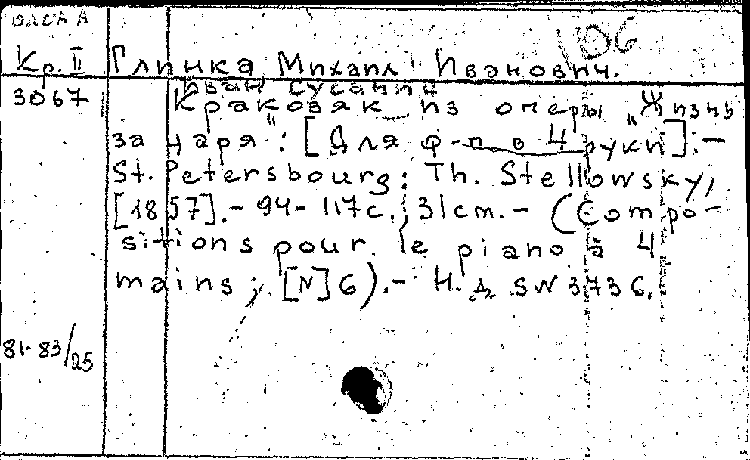 106
Кр. II Глинка Михаил Иванович.
3067 Иван Сусанин
Краковяк из оперы "Жизнь
за царя": [Для ф-п. в 4 руки].-
St. Petersbourg: Th. Stellowsky,
[1857].- 94-117с.; 31cm.- (Compo-
sitions pour le piano à 4
mains; [N]6).- Н.д. SW 3736.
81-83/25